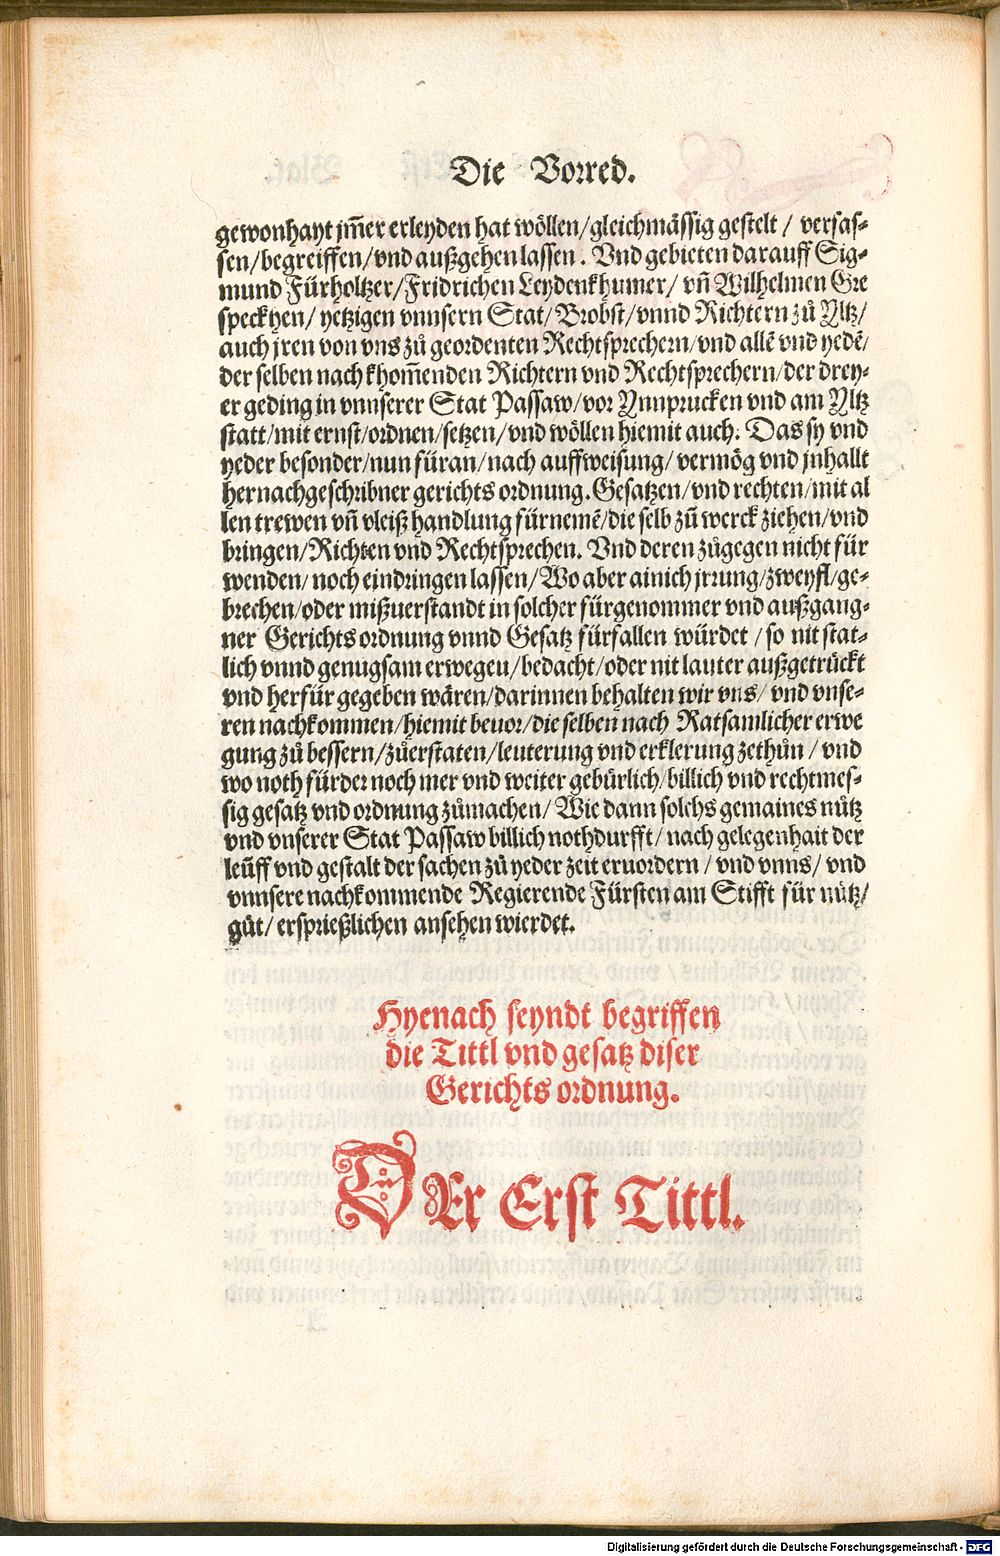 Die Vorred.
gewonhayt jm̄er erleyden hat wöllen/gleichmässig gestelt / verfas-
sen/begreiffen/vnd außgehen lassen. Vnd gebieten darauff Sig-
mund Fürholtzer/Fridrichen Leydenkhumer/ vn̄ Wilhelmen Gre
speckhen/ yetzigen vnnsern Stat/Brobst/vnnd Richtern zů Yltz/
auch jren von vns zů geordenten Rechtsprechern/vnd allē vnd yedē/
der selben nach khom̄enden Richtern vnd Rechtsprechern/der drey-
er geding in vnnserer Stat Passaw/vor Ynnprucken vnd am Yltz
statt/mit ernst/ordnen/setzen/vnd wöllen hiemit auch. Das sy vnd
yeder besonder/nun füran/nach auffweisung/ vermög vnd jnhallt
hernachgeschribner gerichts ordnung. Gesatzen/vnd rechten/mit al
len trewen vn̄ vleiß handlung fürnemē/die selb zů werck ziehen/vnd
bringen/Richten vnd Rechtsprechen. Vnd deren zůgegen nicht für
wenden/ noch eindringen lassen/Wo aber ainich jrrung/zweyfl/ge-
brechen/oder mißuerstandt in solcher fürgenommer vnd außgang-
ner Gerichts ordnung vnnd Gesatz fürfallen würdet / so nit stat-
lich vnnd genugsam erwegen/bedacht/oder nit lauter außgetrückt
vnd herfür gegeben wären/darinnen behalten wir vns/ vnd vnse-
ren nachkommen/hiemit beuor/die selben nach Ratsamlicher erwe
gung zů bessern/zůerstaten/leuterung vnd erklerung zethůn / vnd
wo noth fürder noch mer vnd weiter gebürlich/billich vnd rechtmes-
sig gesatz vnd ordnung zůmachen/ Wie dann solchs gemaines nütz
vnd vnserer Stat Passaw billich nothdurfft/ nach gelegenhait der
leüff vnd gestalt der sachen zů yeder zeit eruordern / vnd vnns/ vnd
vnnsere nachkommende Regierende Fürsten am Stifft für nütz/
gůt/ ersprießlichen ansehen wierdet.
Hyenach seyndt begriffen
die Tittl vnd gesatz diser
Gerichts ordnung.
DEr Erst Tittl.
Digitalisierung gefördert durch die Deutsche Forschungsgemeinschaft - DFG